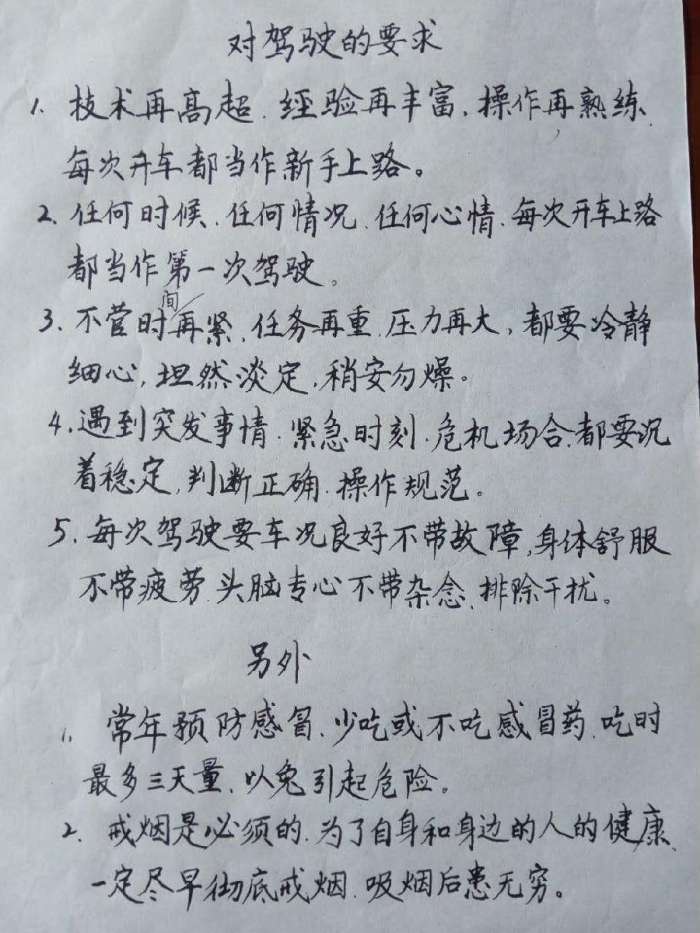 对驾驶的要求
1. 技术再高超、经验再丰富，操作再熟练、
每次开车都当作新手上路。
2. 任何时候、任何情况、任何心情、每次开车上路
都当作第一次驾驶。
3. 不管时间再紧、任务再重、压力再大，都要冷静
细心，坦然淡定，稍安勿燥。
4. 遇到突发事情、紧急时刻、危机场合、都要沉
着稳定，判断正确、操作规范。
5. 每次驾驶要车况良好不带故障，身体舒服
不带疲劳、头脑专心不带杂念、排除干扰。
另外
1. 常年预防感冒、少吃或不吃感冒药、吃时
最多三天量、以免引起危险。
2. 戒烟是必须的、为了自身和身边的人的健康、
一定尽早彻底戒烟、吸烟后患无穷。